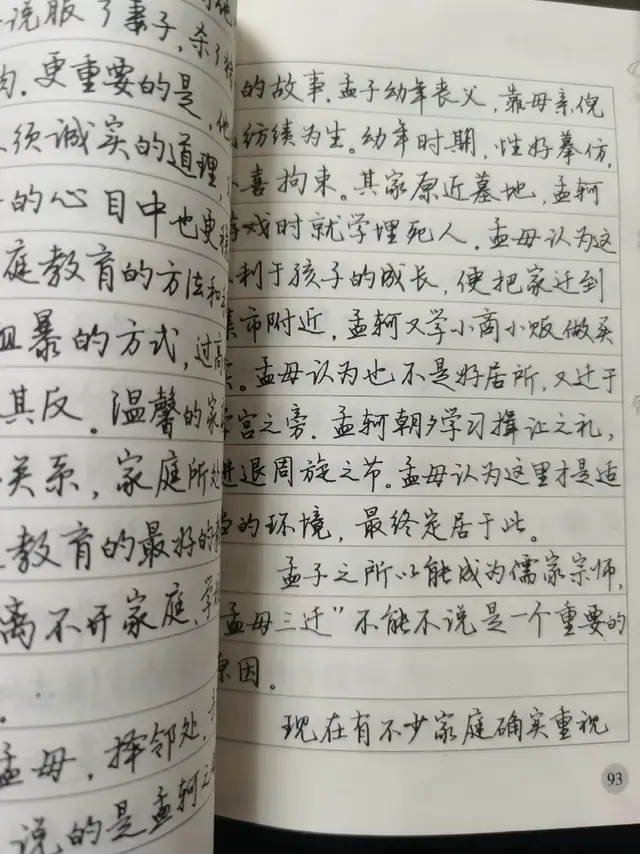 说服了妻子，杀了
肉．更重要的是，他
须诚实的道理，
的心目中也更
庭教育的方法和
粗暴的方式，过高
其反。温馨的家
关系，家庭所处
教育的最好的
离不开家庭、学
孟母，择邻处，子
说的是孟轲之
的故事．孟子幼年丧父，靠母亲倪
纺绩为生。幼年时期，性好摹仿，
喜拘束。其家原近墓地，孟轲
游戏时就学埋死人．孟母认为这
利于孩子的成长，便把家迁到
集市附近，孟轲又学小商小贩做买
卖。孟母认为也不是好居所，又迁于
学宫之旁．孟轲朝夕学习揖让之礼，
进退周旋之节。孟母认为这里才是适
当的环境，最终定居于此。
孟子之所以能成为儒家宗师，
孟母三迁”不能不说是一个重要的
原因。
现在有不少家庭确实重视
93